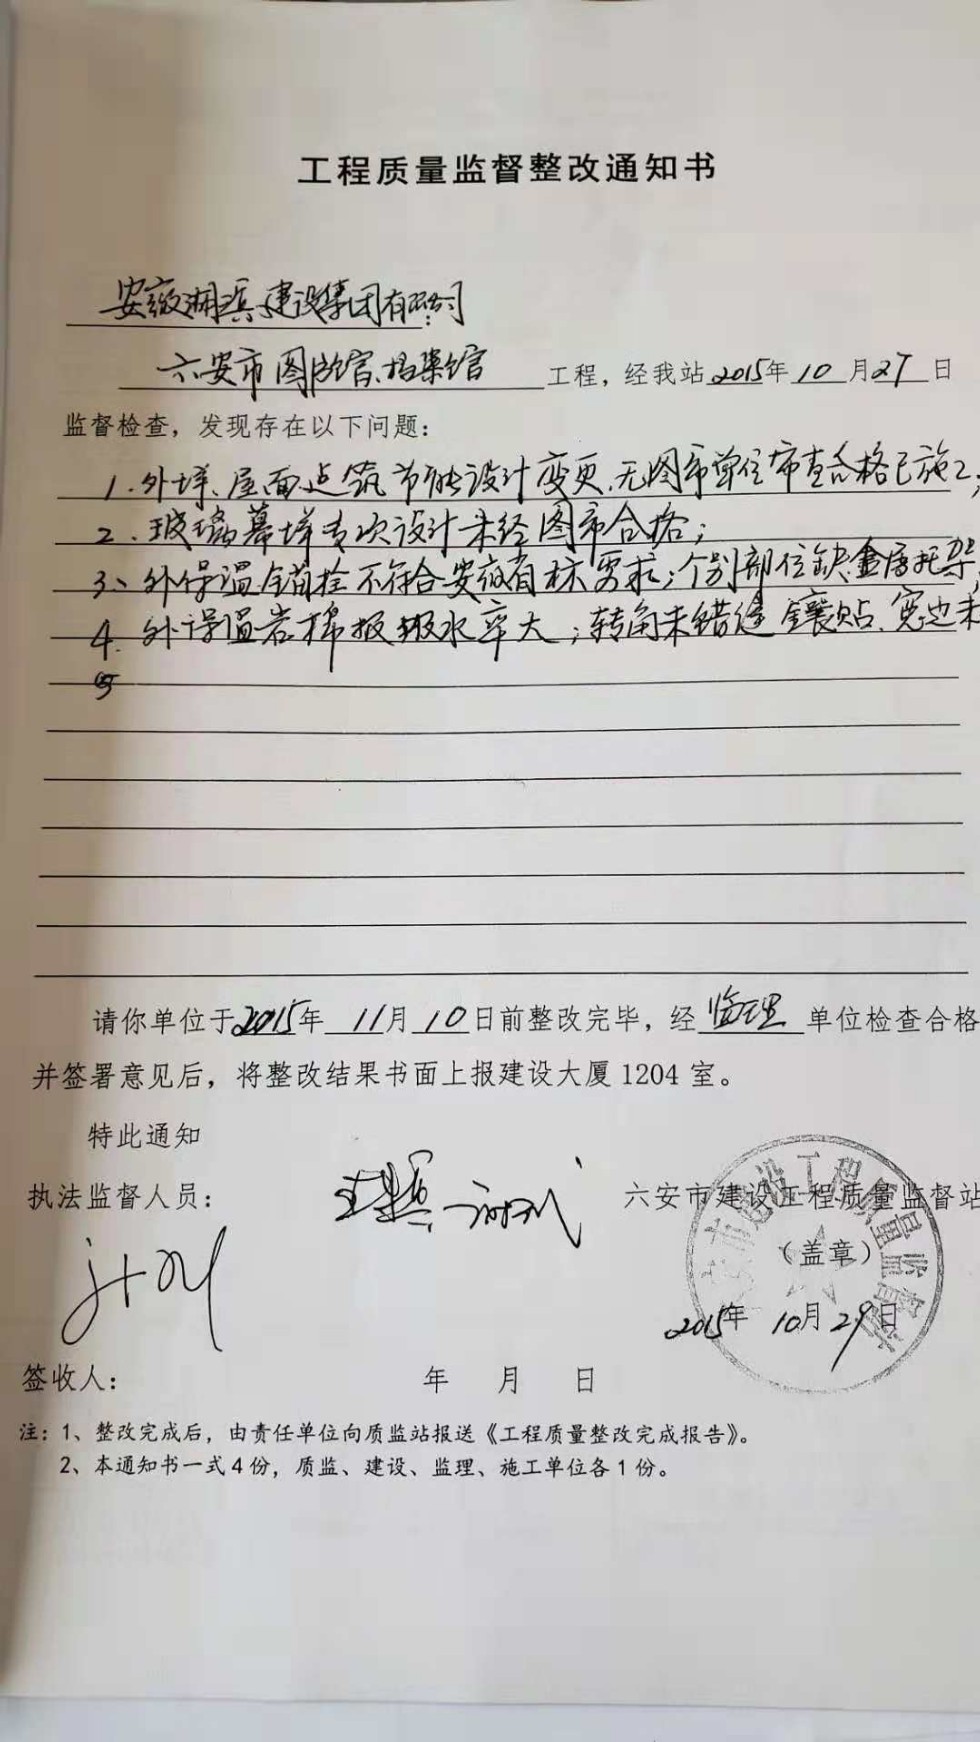 工程质量监督整改通知书
安徽湖滨建设集团有限公司:
六安市图书馆、档案馆 工程，经我站2015年10月27日
监督检查，发现存在以下问题：
1.外墙、屋面建筑节能设计变更,无图审单位审查合格已施工;
2.玻璃幕墙专项设计未经图审合格;
3、外保温锚栓不符合安徽省标要求;个别部位缺金属托架
4.外保温岩棉板吸水率大;转角未错缝镶贴、窗边未
5
请你单位于2015年11月10日前整改完毕，经监理单位检查合格
并签署意见后，将整改结果书面上报建设大厦1204室。
特此通知
执法监督人员： 六安市建设工程质量监督站
（盖章）
2015年10月29日
签收人： 年 月 日
注：1、整改完成后，由责任单位向质监站报送《工程质量整改完成报告》。
2、本通知书一式4份，质监、建设、监理、施工单位各1份。
六安市建设工程质量监督站